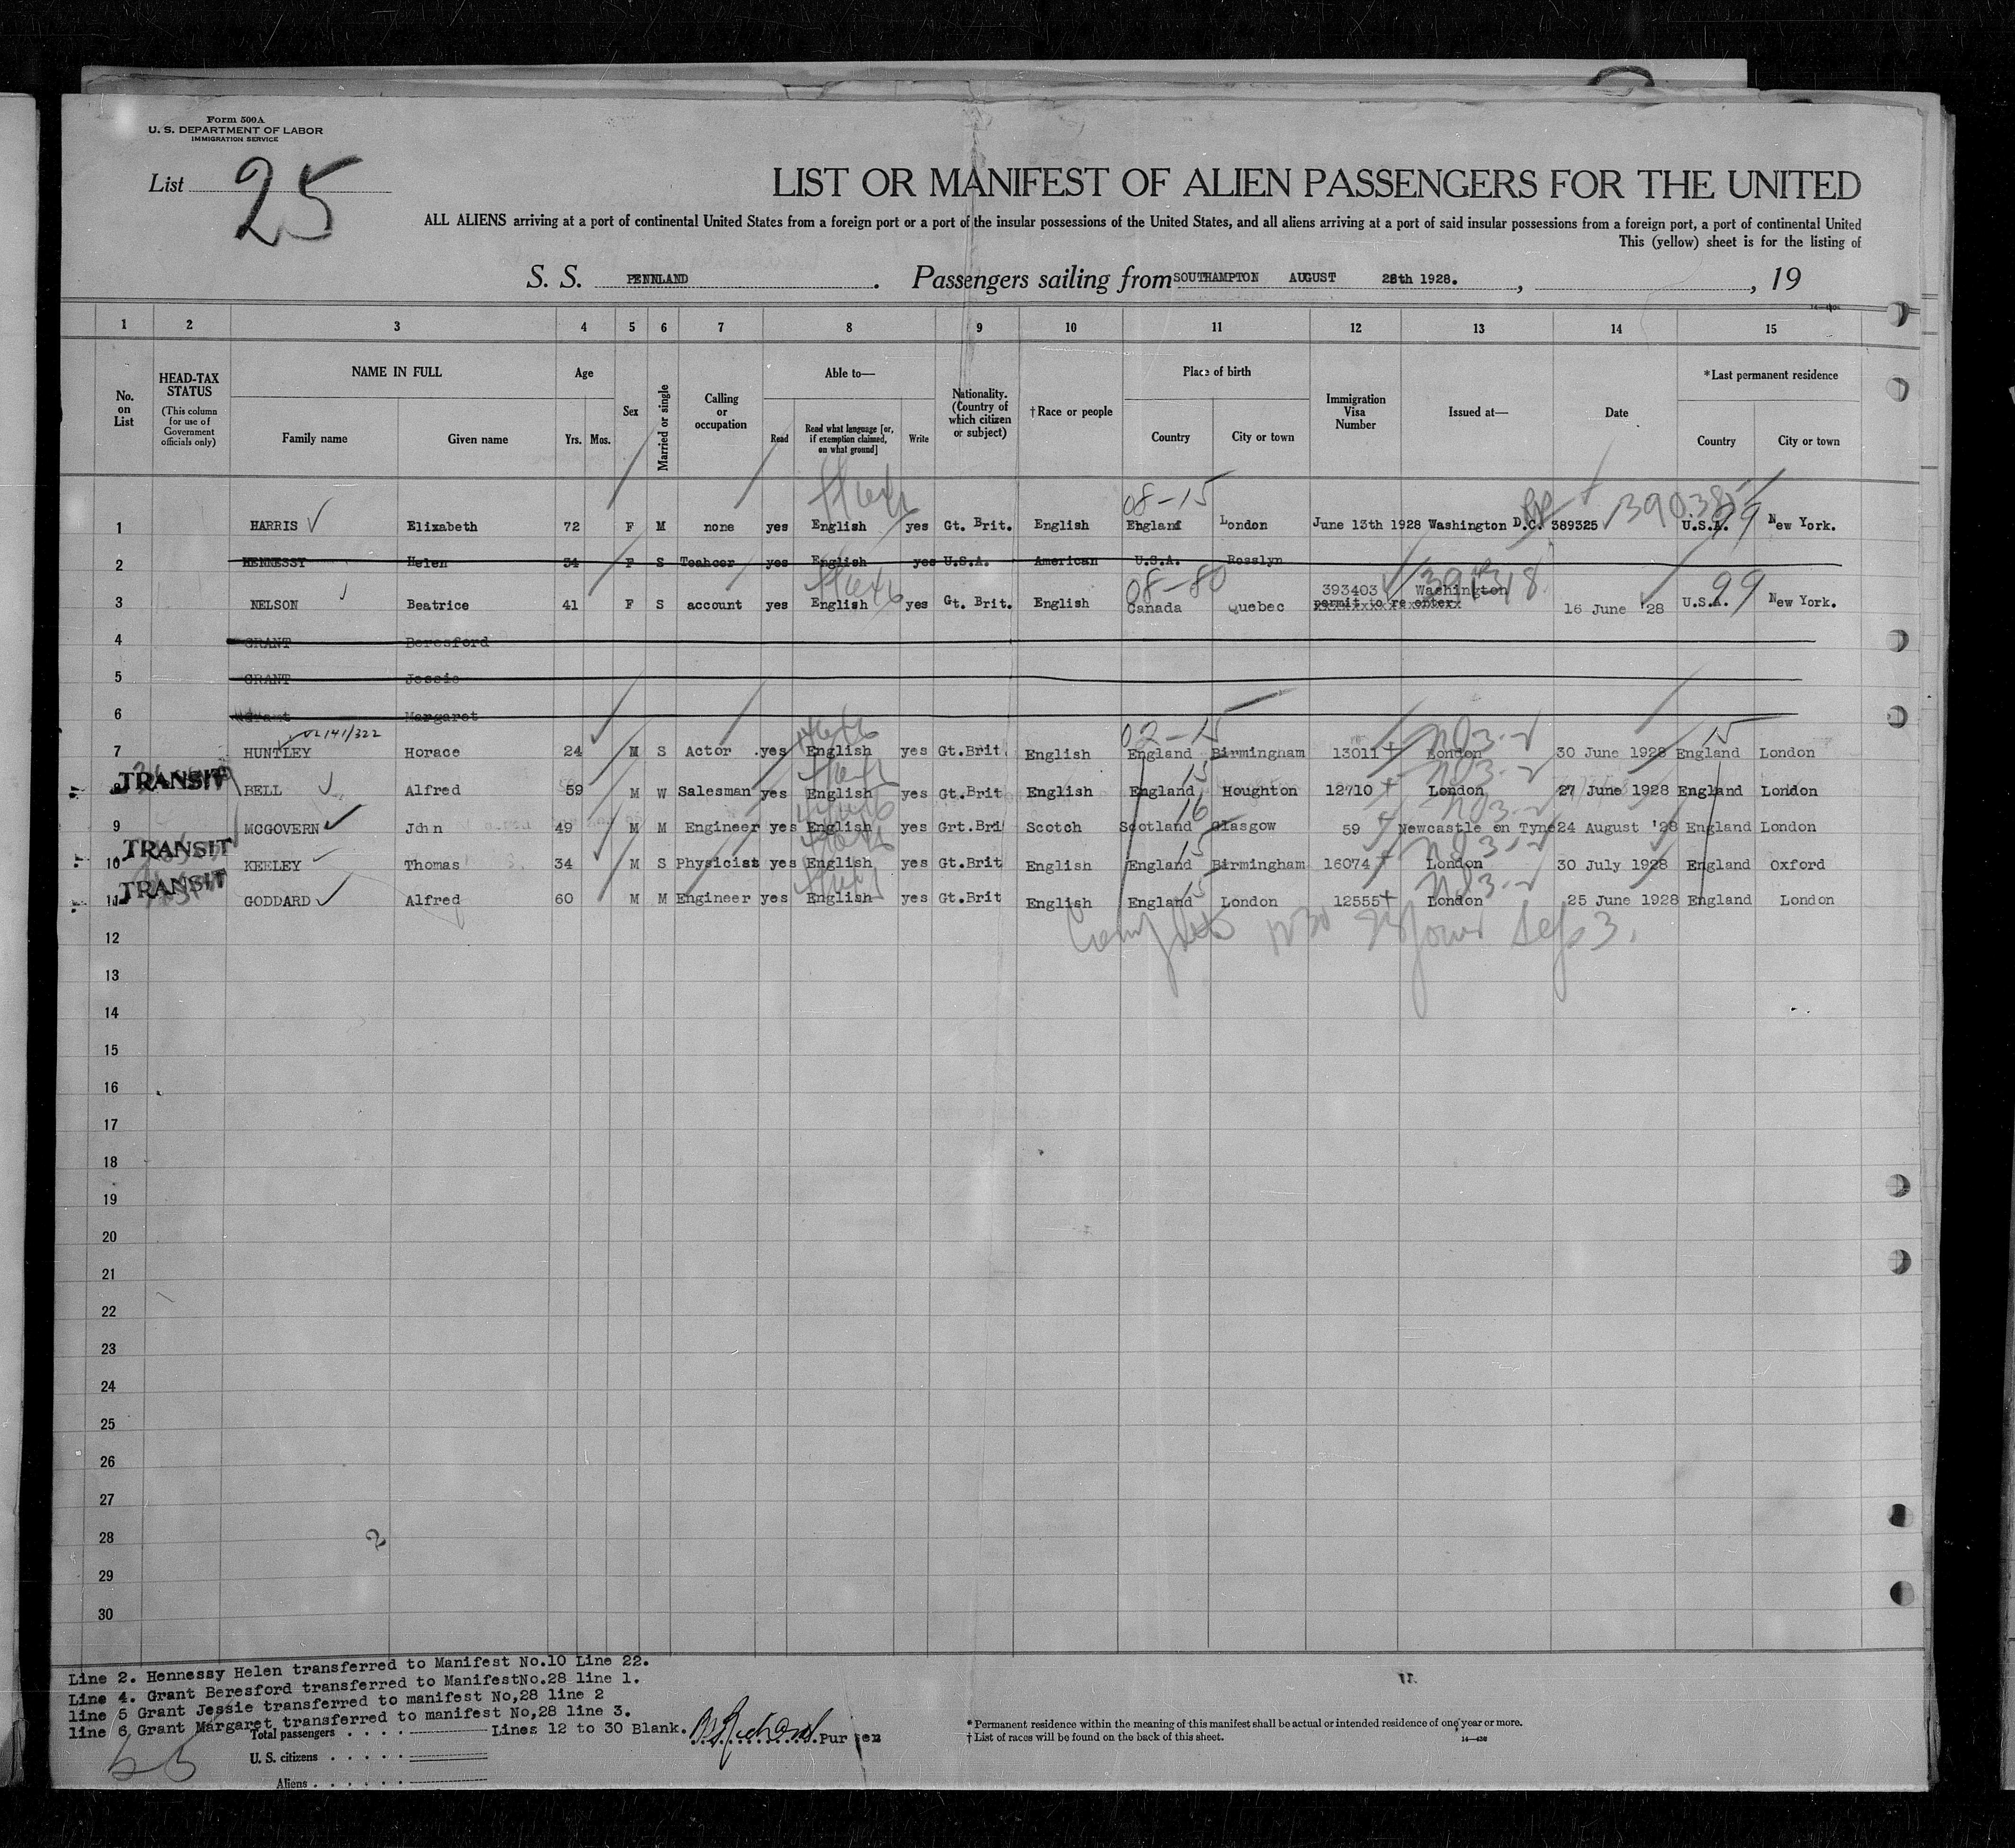 Form 500A
U. S. DEPARTMENT OF LABOR
IMMIGRATION SERVICE
List 25
LIST OR MANIFEST OF ALIEN PASSENGERS FOR THE UNITED
ALL ALIENS arriving at a port of continental United States from a foreign port or a port of the insular possessions of the United States, and all aliens arriving at a port of said insular possessions from a foreign port, a port of continental United
This (yellow) sheet is for the listing of
S. S. PENNLAND. Passengers sailing from SOUTHAMPTON AUGUST 28th 1928. , , 19
1 2 3 4 5 6 7 8 9 10 11 12 13 14 15
No. on List
HEAD-TAX STATUS (This column for use of Government officials only)
NAME IN FULL
Family name Given name
Age
Yrs. Mos.
Sex
Married or single
Calling or occupation
Able to—
Read Read what language [or, if exemption claimed, on what ground] Write
Nationality. (Country of which citizen or subject)
†Race or people
Place of birth
Country City or town
Immigration Visa Number
Issued at—
Date
*Last permanent residence
Country City or town
08-15 390385
1 HARRIS Elizabeth 72 F M none yes English yes Gt. Brit. English England London June 13th 1928 Washington D.C. 389325 U.S.A. 99 New York.
2 HENNESSY Helen 34 F S Teahcer yes English yes U.S.A. American U.S.A. Rosslyn
08-80 391318
3 NELSON Beatrice 41 F S account yes English yes Gt. Brit. English Canada Quebec 393403 Washington permit to re enterx 16 June '28 U.S.A. 99 New York.
4 GRANT Beresford
5 GRANT Jessie
6 Grant Margaret
141/322 02-15 15
7 HUNTLEY Horace 24 M S Actor yes English yes Gt.Brit English England Birmingham 13011 London 30 June 1928 England London
TRANSIT
8 BELL Alfred 59 M W Salesman yes English yes Gt.Brit English England 15 Houghton 12710 London 27 June 1928 England London
9 MCGOVERN John 49 M M Engineer yes English yes Grt.Bri Scotch Scotland 16 Glasgow 59 Newcastle on Tyne 24 August '28 England London
TRANSIT
10 KEELEY Thomas 34 M S Physicist yes English yes Gt.Brit English England 15 Birmingham 16074 London 30 July 1928 England Oxford
TRANSIT
11 GODDARD Alfred 60 M M Engineer yes English yes Gt.Brit English England 15 London 12555 London 25 June 1928 England London
12
13
14
15
16
17
18
19
20
21
22
23
24
25
26
27
28
29
30
Line 2. Hennessy Helen transferred to Manifest No.10 Line 22.
Line 4. Grant Beresford transferred to ManifestNo.28 line 1.
line 5 Grant Jessie transferred to manifest No,28 line 2
line 6 Grant Margaret transferred to manifest No,28 line 3.
Total passengers Lines 12 to 30 Blank. Purser
U. S. citizens
Aliens
* Permanent residence within the meaning of this manifest shall be actual or intended residence of one year or more.
† List of races will be found on the back of this sheet.
14—430